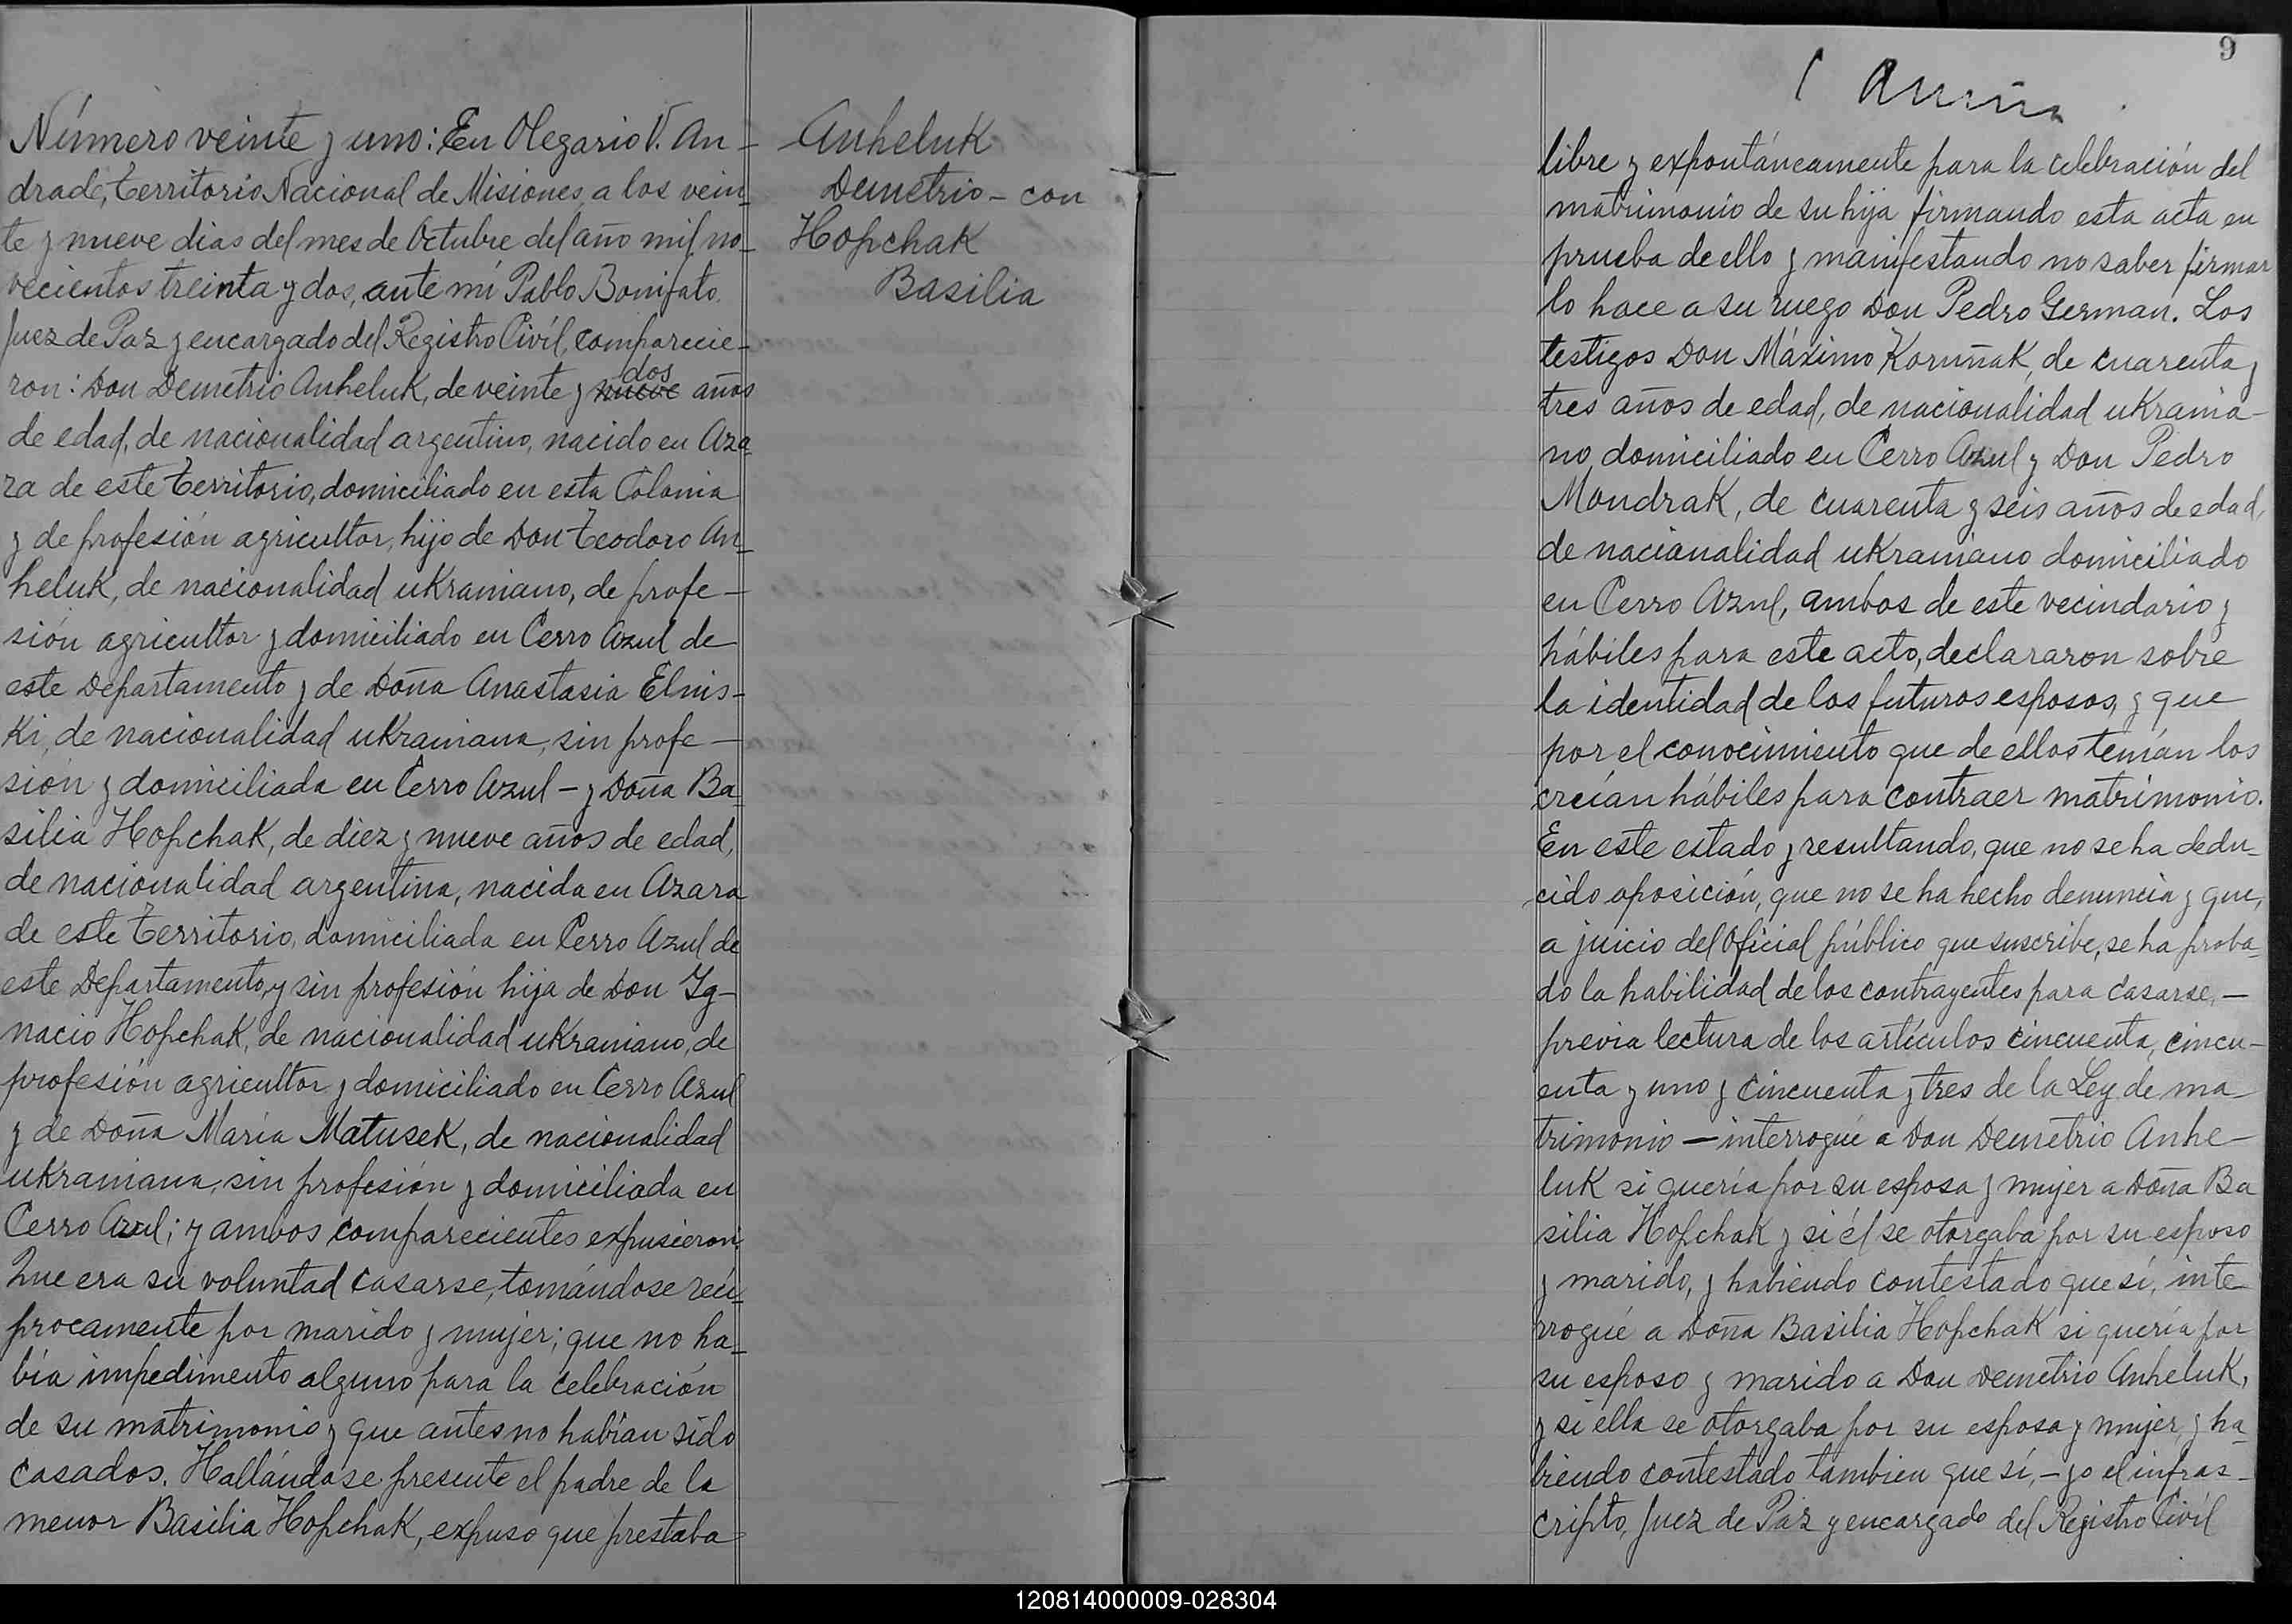 Número veinte y uno: En Olegario V. An-
drade, Territorio Nacional de Misiones, a los vein-
te y nueve dias del mes de Octubre del año mil no-
vecientos treinta y dos, ante mi Pablo Bonifato.
Juez de Paz y encargado del Registro Civíl, comparecie-
dos
ron: Don Demetrio Anheluk, de veinte y nueve años
de edad, de nacionalidad argentino, nacido en Aza-
ra de este territorio, domiciliado en esta Colonia
y de profesión agricultor, hijo de Don Teodoro An-
heluk, de nacionalidad ukraniano, de profe-
sión agricultor y domiciliado en Cerro Azul de
este Departamento y de Doña Anastasia Elnis-
ki, de nacionalidad ukraniana, sin profe-
sión y domiciliada en Cerro Azul - y Doña Ba-
silia Hopchak, de diez y nueve años de edad,
de nacionalidad argentina, nacida en Azara
de este territorio, domiciliada en Cerro Azul de
este Departamento, y sin profesión hija de Don Ig-
nacio Hopchak, de nacionalidad ukraniano, de
profesión agricultor y domiciliado en Cerro Azul
y de Doña María Matusek, de nacionalidad
ukraniana, sin profesión y domiciliada en
Cerro Azul; y ambos comparecientes expusieron:
Que era su voluntad casarse, tomándose recí-
procamente por marido y mujer; que no ha-
bía impedimento alguno para la celebración
de su matrimonio y que antes no habían sido
casados. Hallándose presente el padre de la
menor Basilia Hopchak, expuso que prestaba
Anheluk
Demetrio - con
Hopchak
Basilia
9
libre y expontáneamente para la celebración del
matrimonio de su hija firmando esta acta en
prueba de ello y manifestando no saber firmar
lo hace a su ruego Don Pedro German. Los
testigos Don Máximo Koruñak, de cuarenta y
tres años de edad, de nacionalidad ukrania-
no, domiciliado en Cerro Azul y Don Pedro
Mondrak, de cuarenta y seis años de edad,
de nacionalidad ukraniano domiciliado
en Cerro Azul, ambos de este vecindario y
hábiles para este acto, declararon sobre
la identidad de los futuros esposos, y que
por el conocimiento que de ellos tenían los
creían hábiles para contraer matrimonio.
En este estado y resultando, que no se ha dedu-
cido oposición, que no se ha hecho denuncia y que,
a juicio del Oficial público que suscribe, se ha proba-
do la habilidad de los contrayentes para casarse, -
previa lectura de los artículos cincuenta, cincu-
enta y uno y cincuenta y tres de la Ley de ma-
trimonio - interrogué a Don Demetrio Anhe-
luk si quería por su esposa y mujer a Doña Ba
silia Hopchak y si él se otorgaba por su esposo
y marido, y habiendo contestado que sí, inte
rrogué a Doña Basilia Hopchak si quería por
su esposo y marido a Don Demetrio Anheluk,
y si ella se otorgaba por su esposa y mujer, y ha-
biendo contestado tambien que sí, - yo el infras-
cripto, Juez de Paz y encargado del Registro Civíl
120814000009-028304